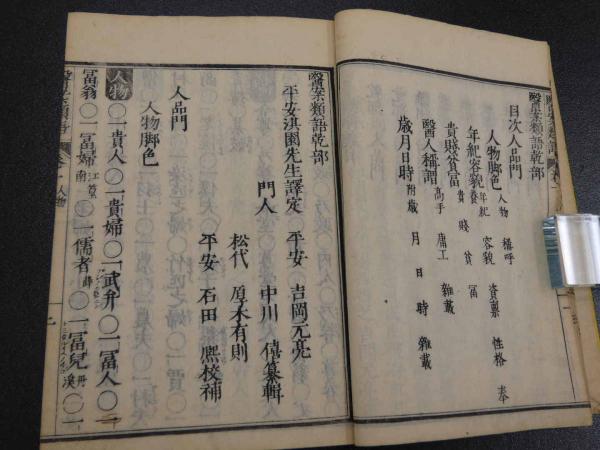 醫案類語乾部
目次人品門
人物脚色 人物 稱呼
年紀容貌 年紀 容貌 資稟 性格 奉養
貴賤貧富 貴賤 貧富
醫人稱謂 高手 庸工 雜載
歳月日時 附歳月日時雜載
醫案類語乾部
平安淇園先生譯定 平安 吉岡元亮
門人 中川 僖纂輯
松代 原木有則
平安 石田 熈校補
人品門
人物脚色
人物 〇一貴人〇一貴婦〇一武弁〇一冨人〇一
冨翁〇一冨婦 江篁南 〇一儒者 薛 〇一冨兒 丹溪 〇一
人物
二